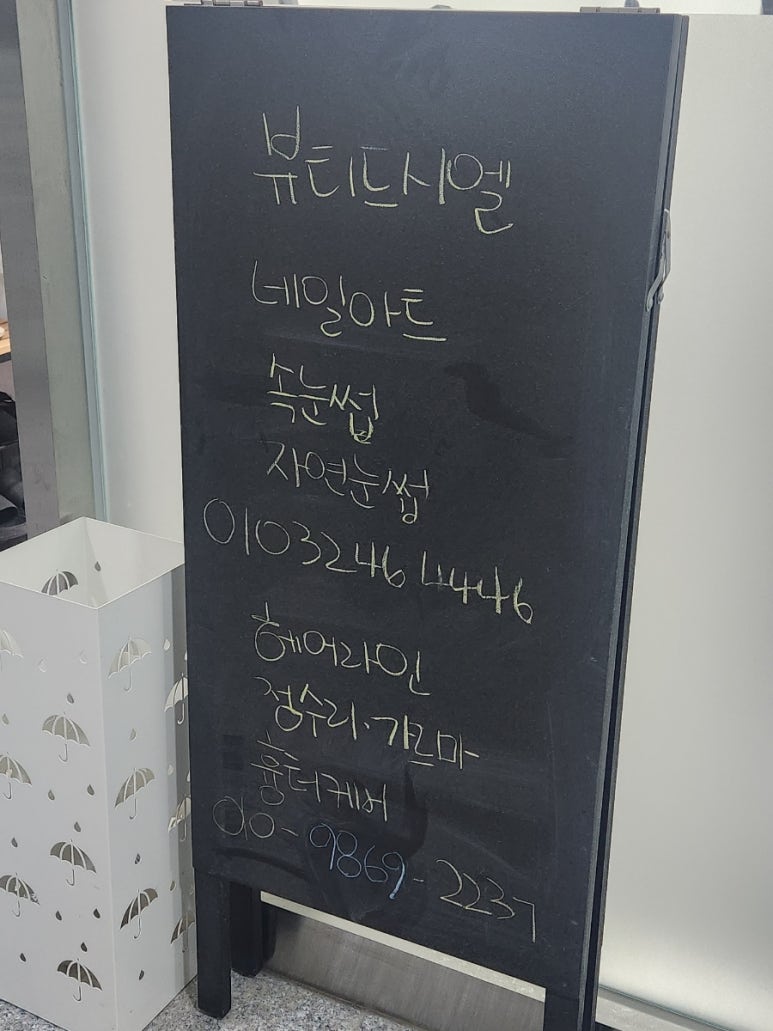 뷰티드시엘
네일아트
속눈썹
자연눈썹
0103246 4446
헤어라인
정수리·가르마
흉터케버
010-9869-2237